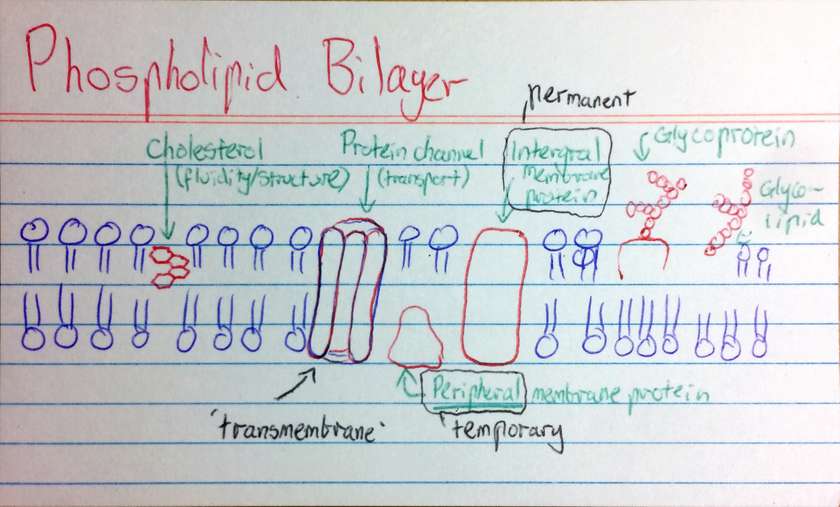 Phospholipid Bilayer
permanent
Cholesterol
(fluidity/structure)
Protein channel
(transport)
Intergral
membrane
protein
Glycoprotein
Glyco-
lipid
Peripheral membrane protein
'transmembrane'
'temporary